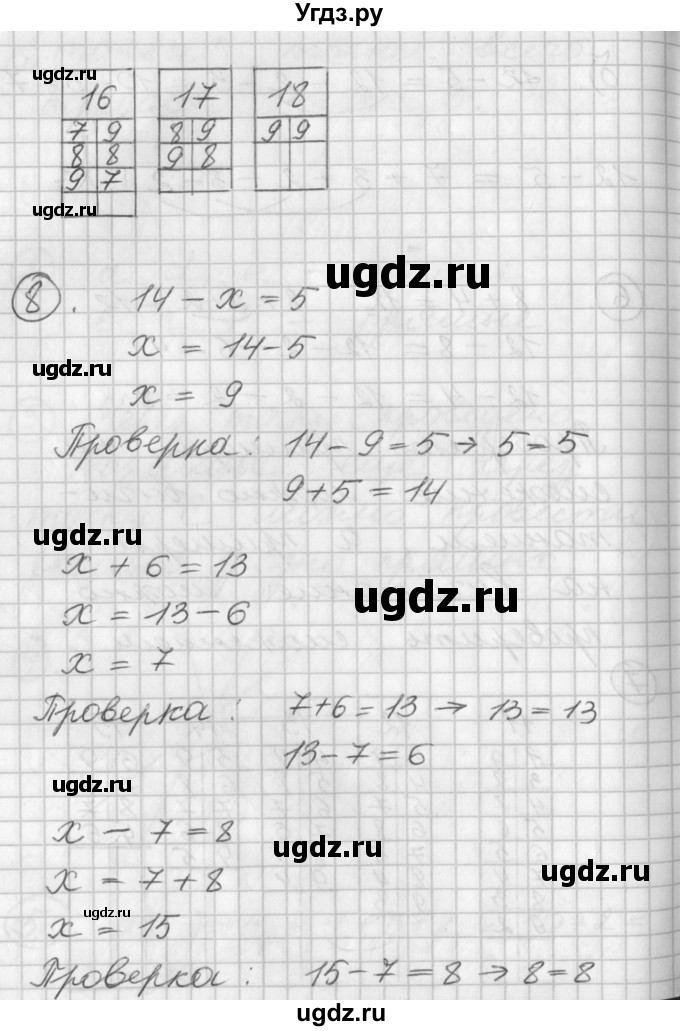 Угдз.ру
ugdz.ru
16 17 18
7 9 8 9 9 9
8 8 9 8
9 7
ugdz.ru
ugdz.ru
8. 14 - x = 5
x = 14 - 5
ugdz.ru
x = 9
Проверка: 14 - 9 = 5 → 5 = 5
9 + 5 = 14
ugdz.ru
x + 6 = 13
ugdz.ru
x = 13 - 6
x = 7
Проверка: 7 + 6 = 13 → 13 = 13
13 - 7 = 6
ugdz.ru
x - 7 = 8
ugdz.ru
ugdz.ru
x = 7 + 8
ugdz.ru
x = 15
Проверка: 15 - 7 = 8 → 8 = 8
ugdz.ru